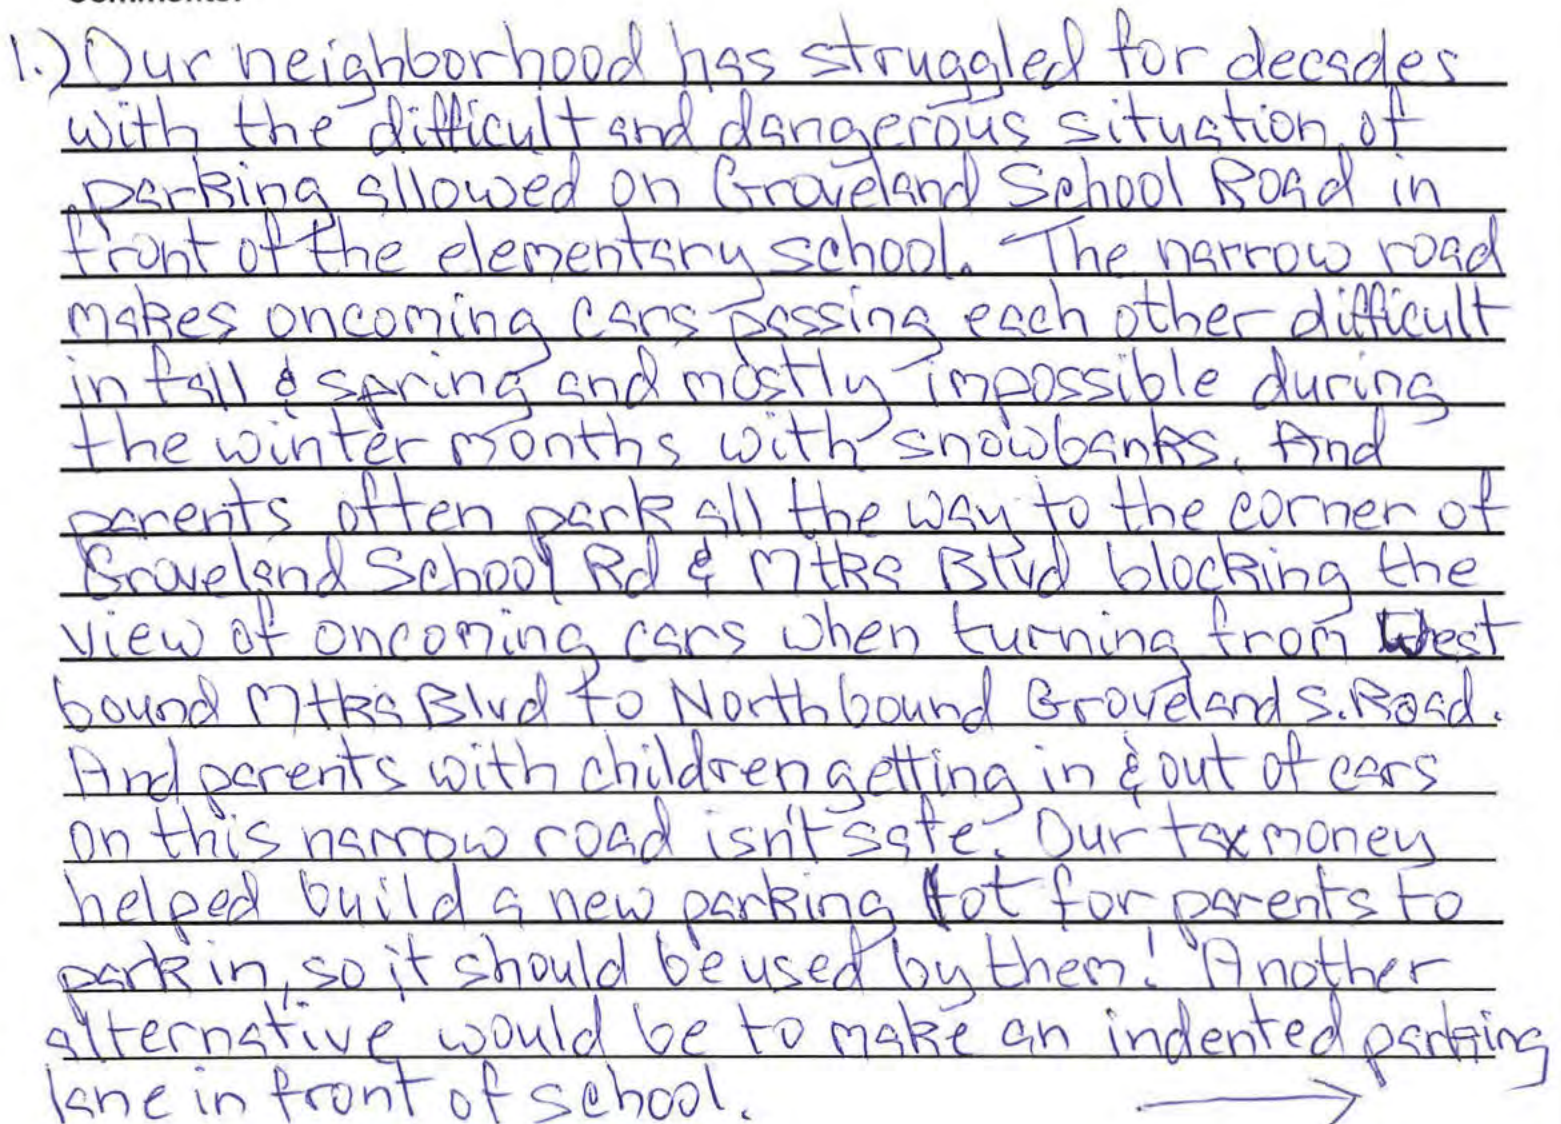 1.) Our neighborhood has struggled for decades
with the difficult and dangerous situation of
parking allowed on Groveland School Road in
front of the elementary school. The narrow road
makes oncoming cars passing each other difficult
in fall & spring and mostly impossible during
the winter months with snowbanks. And
parents often park all the way to the corner of
Groveland School Rd & Mtka Blvd blocking the
view of oncoming cars when turning from West
bound Mtka Blvd to Northbound Groveland S. Road.
And parents with children getting in & out of cars
on this narrow road isn't safe. Our tax money
helped build a new parking lot for parents to
park in, so it should be used by them! Another
alternative would be to make an indented parking
lane in front of school. →